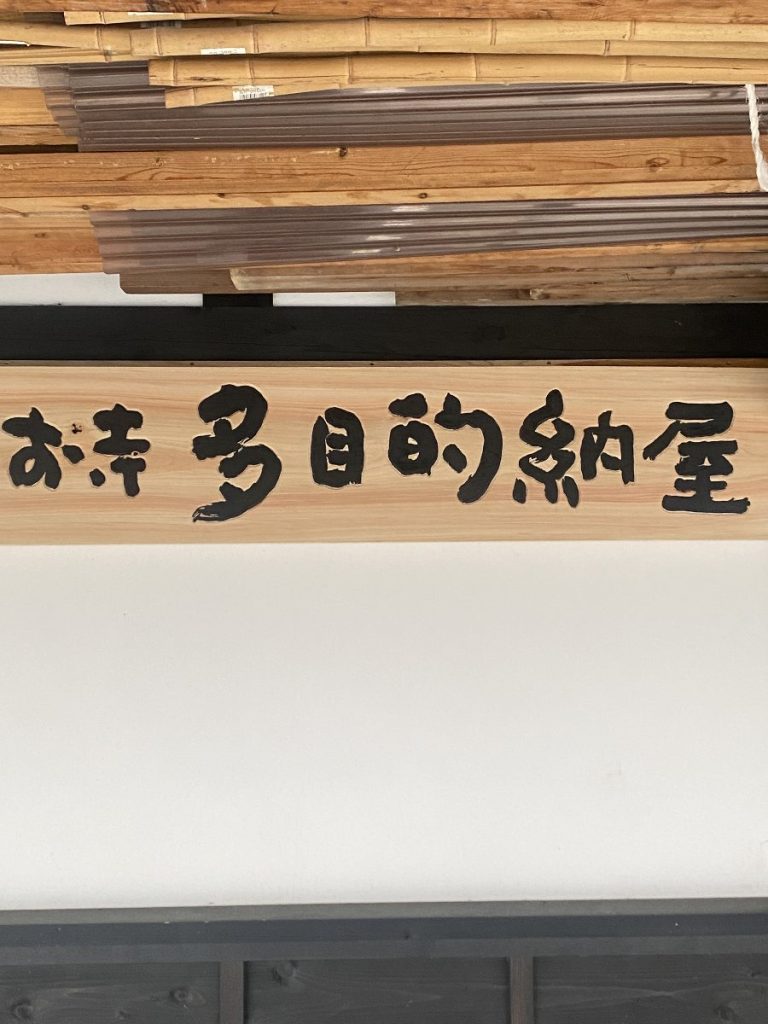 お寺多目的納屋